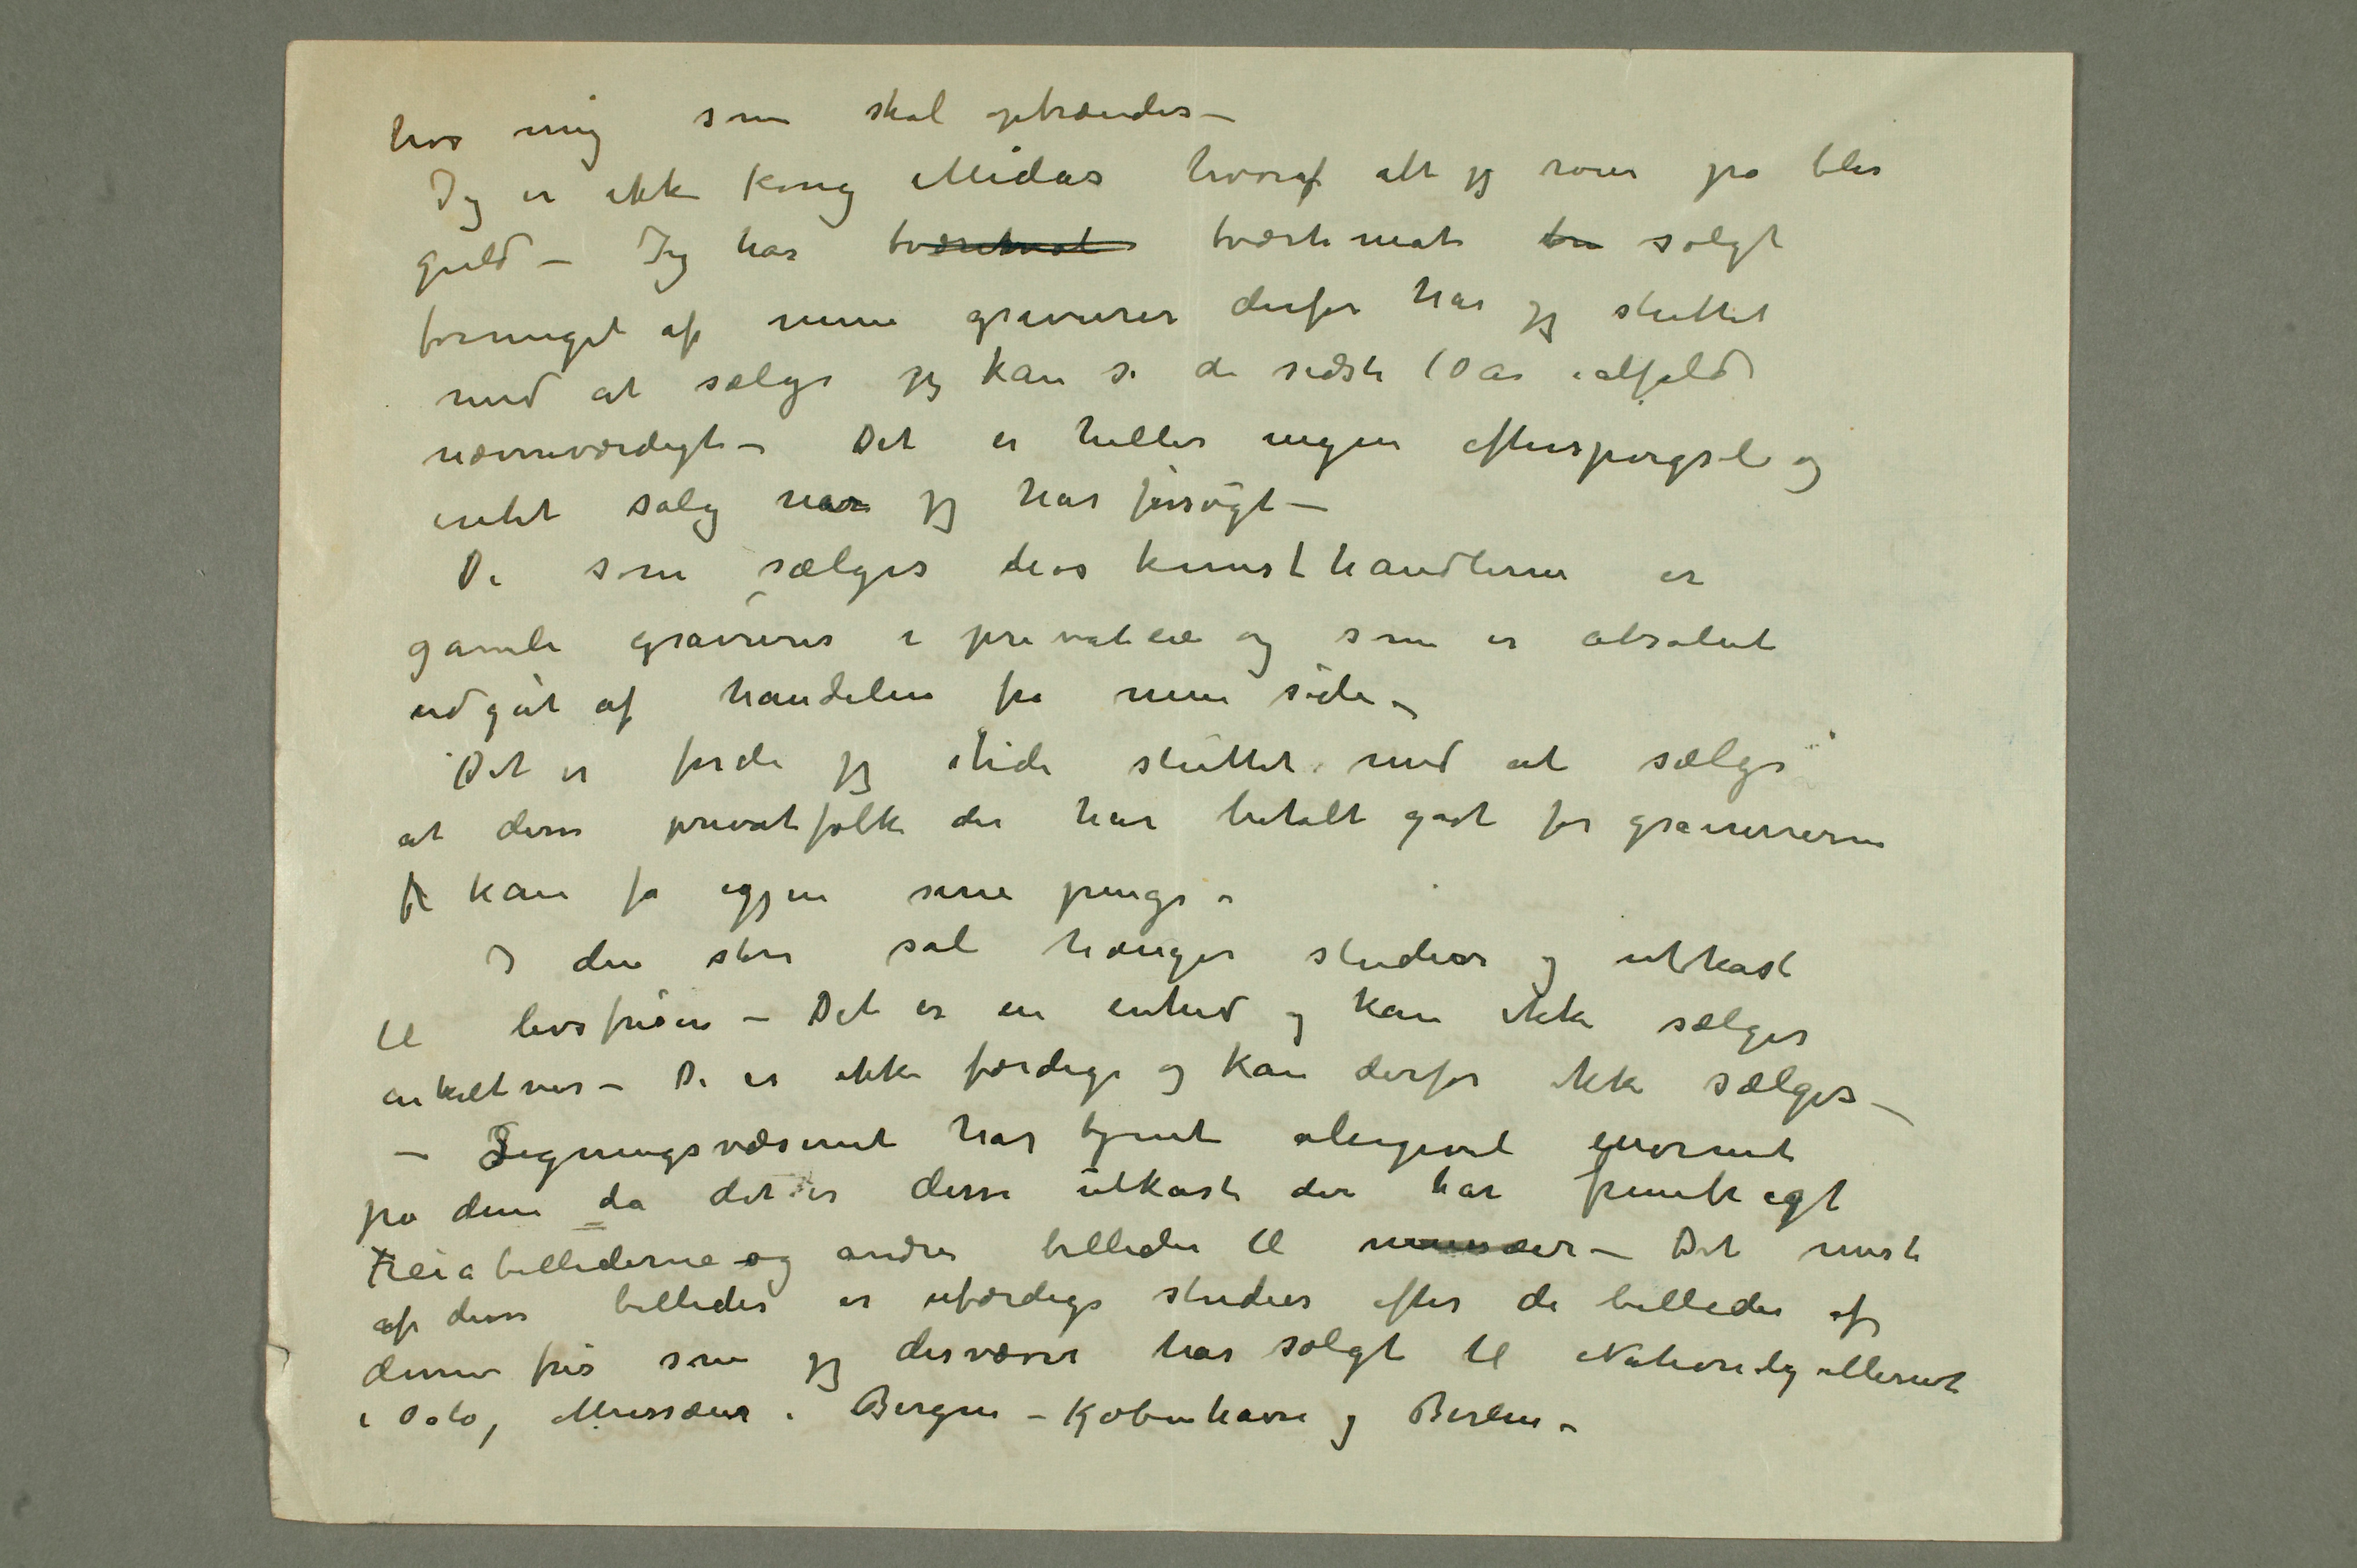 hos mig som skal opbrændes –
Jeg er ikke Kong Midas hvoraf alt jeg rører på blir
guld – Jeg har tværtimot tværtimot for solgt
formeget af mine gravurer derfor har jeg sluttet
med at sælge jeg kan si de sidste 10 år ialfald
nævneværdigt – Det er heller ingen efterspørgsel og
intet salg når jeg har forsøgt –
De som sælges hos kunsthandlerne er
gamle gravurer i privateie og som er absolut
udgåt af handelen fra min side –
Det er fordi jeg itide sluttet med at sælge
at disse privatfolk der har betalt godt for gravurerne
få kan få igjen sine penge –
I den store sal hænger studier og utkast
til livsfrisen – Det er en enhed og kan ikke sælges
enkeltvis – De er ikke færdige og kan derfor ikke sælges –
– Ligningsvæsenet har tjent alligevel enormt
på dem da det er disse utkast der har frembragt
Freiabillederne og andre billeder til museer – Det meste
af disse billeder er ufærdige studier efter de billeder af
denne fris som jeg desværre har solgt til Nationalgalleriet
i Oslo, Museæer i Bergen – Kjøbenhavn og Berlin –